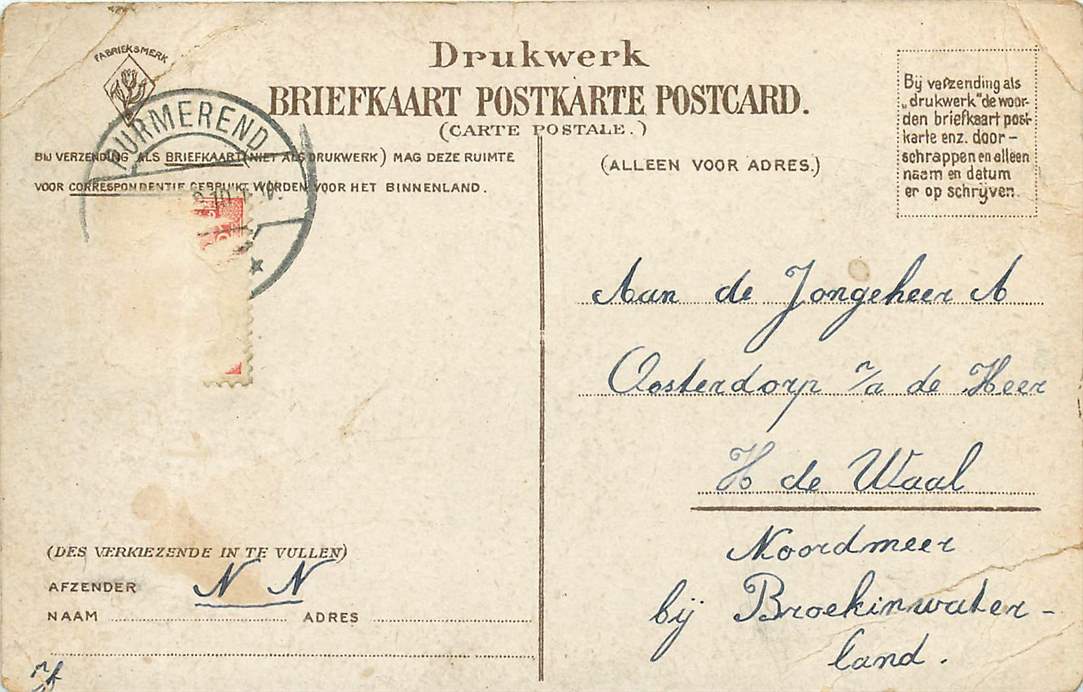 FABRIEKSMERK
Drukwerk
BRIEFKAART POSTKARTE POSTCARD.
(CARTE POSTALE.)
Bij verzending als
„drukwerk" de woor-
den briefkaart post-
karte enz. door-
schrappen en alleen
naam en datum
er op schrijven.
PURMEREND
BIJ VERZENDING ALS BRIEFKAART (NIET ALS DRUKWERK) MAG DEZE RUIMTE
VOOR CORRESPONDENTIE GEBRUIKT WORDEN VOOR HET BINNENLAND.
(ALLEEN VOOR ADRES.)
Aan de Jongeheer A
Oosterdorp p/a de Heer
H de Waal
Noordmeer
bij Broekinwater-
land.
(DES VERKIEZENDE IN TE VULLEN)
AFZENDER N N
NAAM ADRES